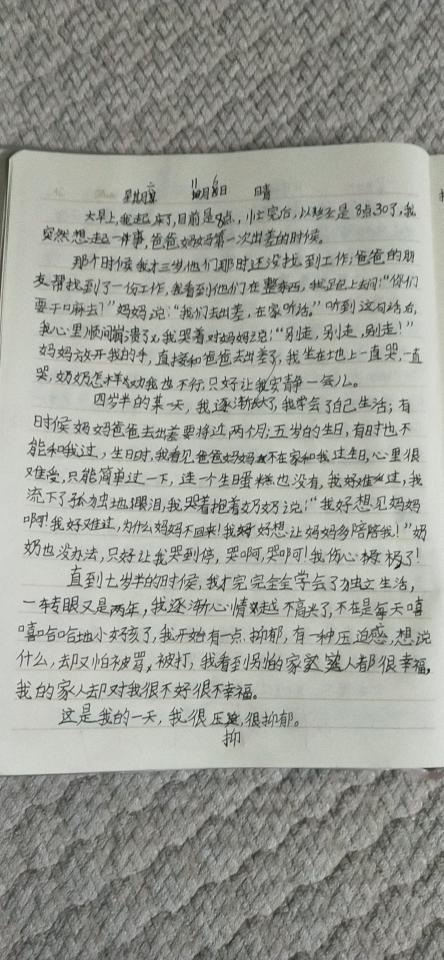 星期六 11月8日 晴
大早上,我起床了,目前是8点,小士完后,以经是8点30了,我
突然想起一件事,爸爸妈妈第一次出差的时侯。
那个时侯我才三岁他们那时还没找到工作;爸爸的朋
友帮找到了一份工作,我看到他们在整东西,我上去问:“你们
要干嘛去?”妈妈说:“我们去出差,在家听话。”听到这句话后,
我心里顺间崩溃了,我哭着对妈妈说:“别走,别走,别走!”
妈妈放开我的手,直接和爸爸去出差了,我坐在地上一直哭,一直
哭,奶奶怎样劝我也不行,只好让我安静一会儿。
四岁半的某一天,我逐渐长大了,我学会了自己生活;有
时侯妈妈爸爸去出差要将过两个月;五岁的生日,有时也不
能和我过,生日时,我看见爸爸妈妈不在家和我过生日,心里很
难受,只能简单过一下,连一个生日蛋糕也没有,我好难过,我
流下了孤独地眼泪,我哭着抱着奶奶说:“我好想见妈妈
啊!我好难过,为什么妈妈不回来!我好好想让妈妈多陪陪我!”奶
奶也没办法,只好让我哭到停,哭啊,哭啊!我伤心极了!
直到七岁半的时侯,我才完完全全学会了独立生活,
一转眼又是两年,我逐渐心情越不高兴了,不在是每天嘻
嘻哈哈地小女孩了,我开始有一点抑郁,有一种压迫感,想说
什么,却又怕被骂,被打,我看到别的家人都很幸福,
我的家人却对我很不好很不幸福。
这是我的一天,我很压,很抑郁。
抑